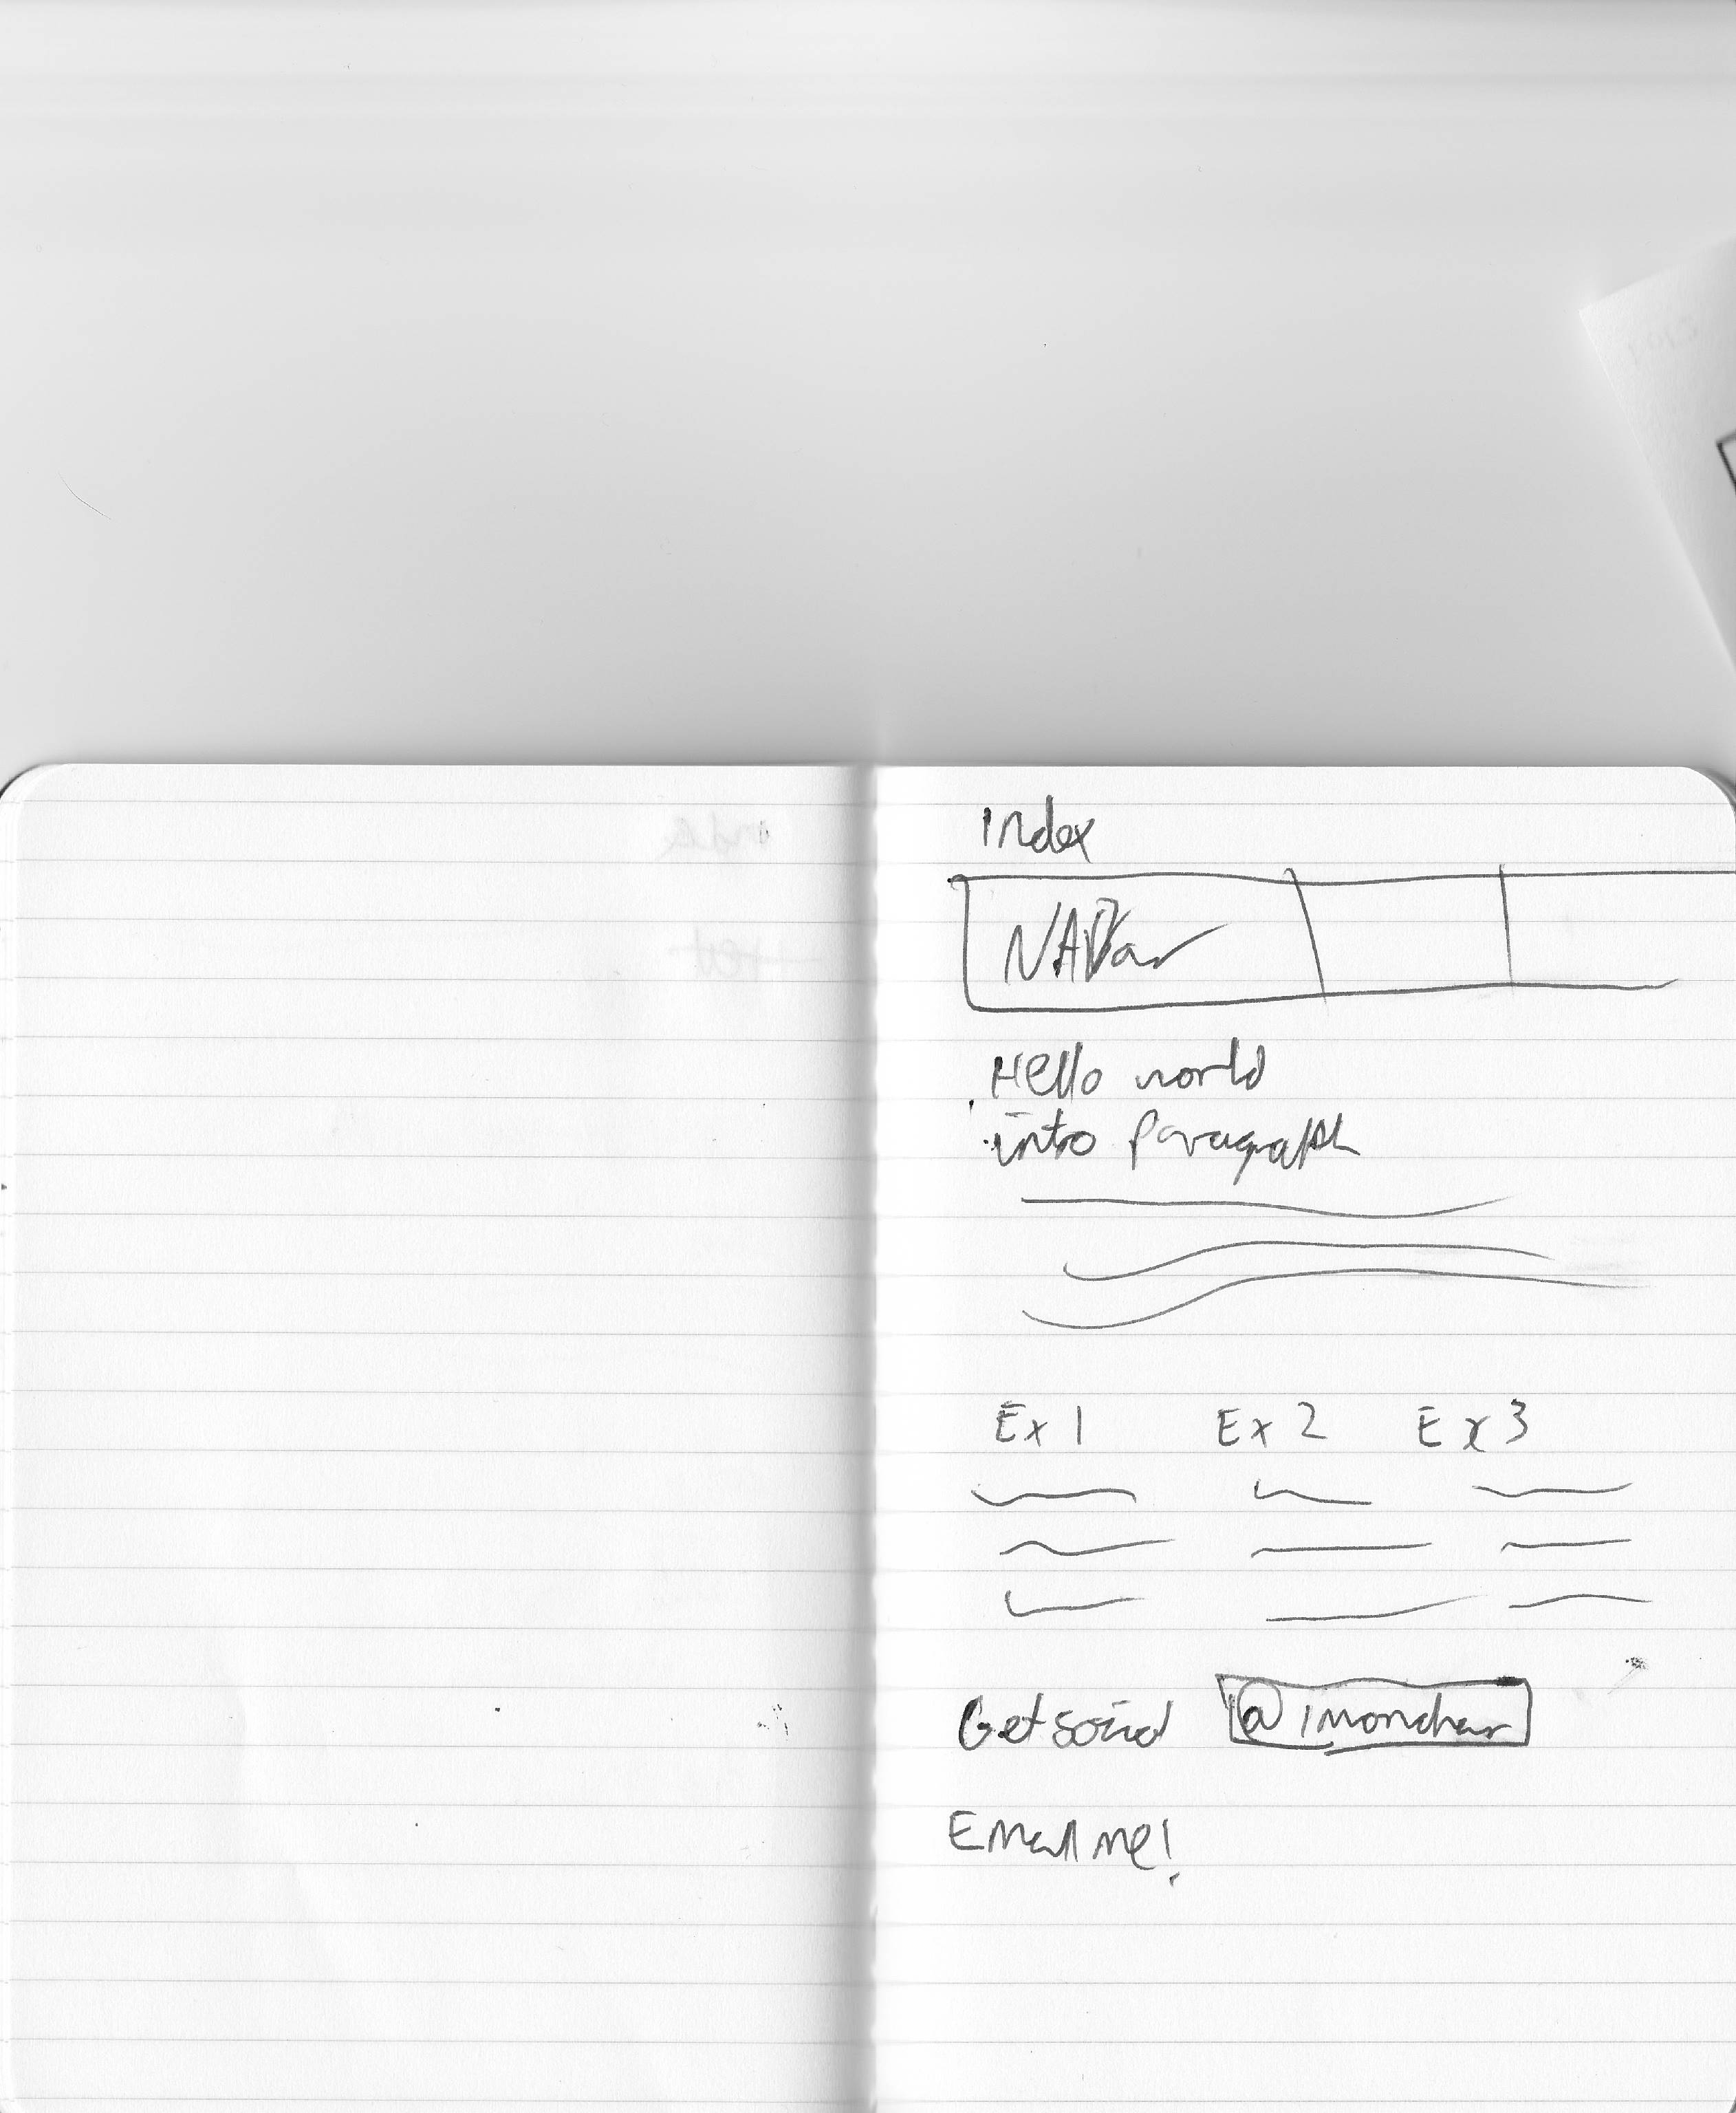 Index
NAVbar
Hello world
intro paragraph
Ex 1 Ex 2 Ex 3
Get social @imonchar
Email me!